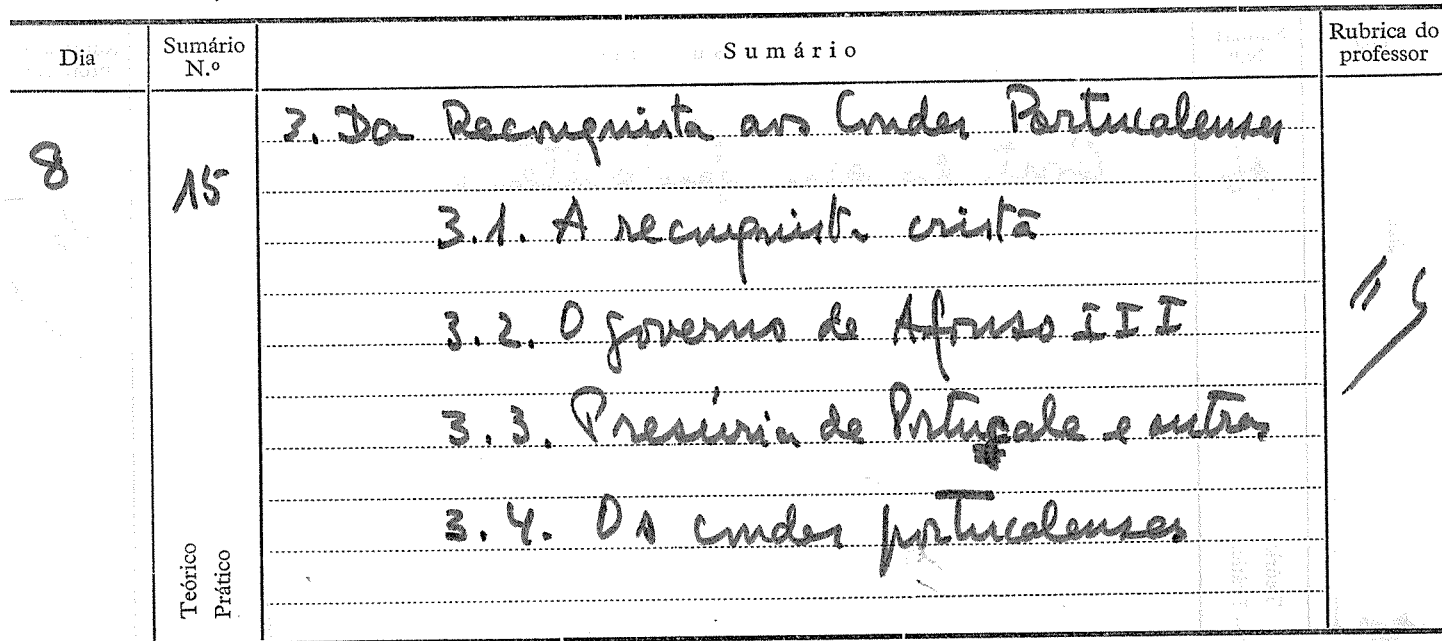 Dia
Sumário N.º
Sumário
Rubrica do professor
8
15
3. Da Reconquista aos Condes Portucalenses
3.1. A reconquista cristã
3.2. O governo de Afonso III
3.3. Presúria de Portugale e outras
3.4. Os condes portucalenses
Teórico
Prático